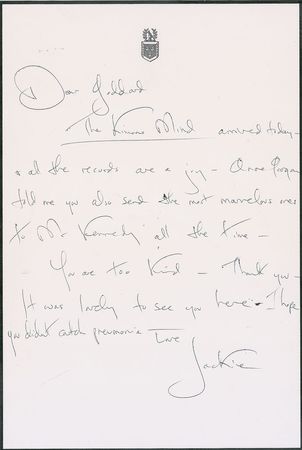 Dear Goddard
The Kimono Mind arrived today -
& all the records are a joy - Anne
told me you also send the most marvelous ones
to Mr Kennedy all the time -
You are too kind - Thank you -
It was lovely to see you here - I hope
you didn't catch pneumonia -
Love
Jackie